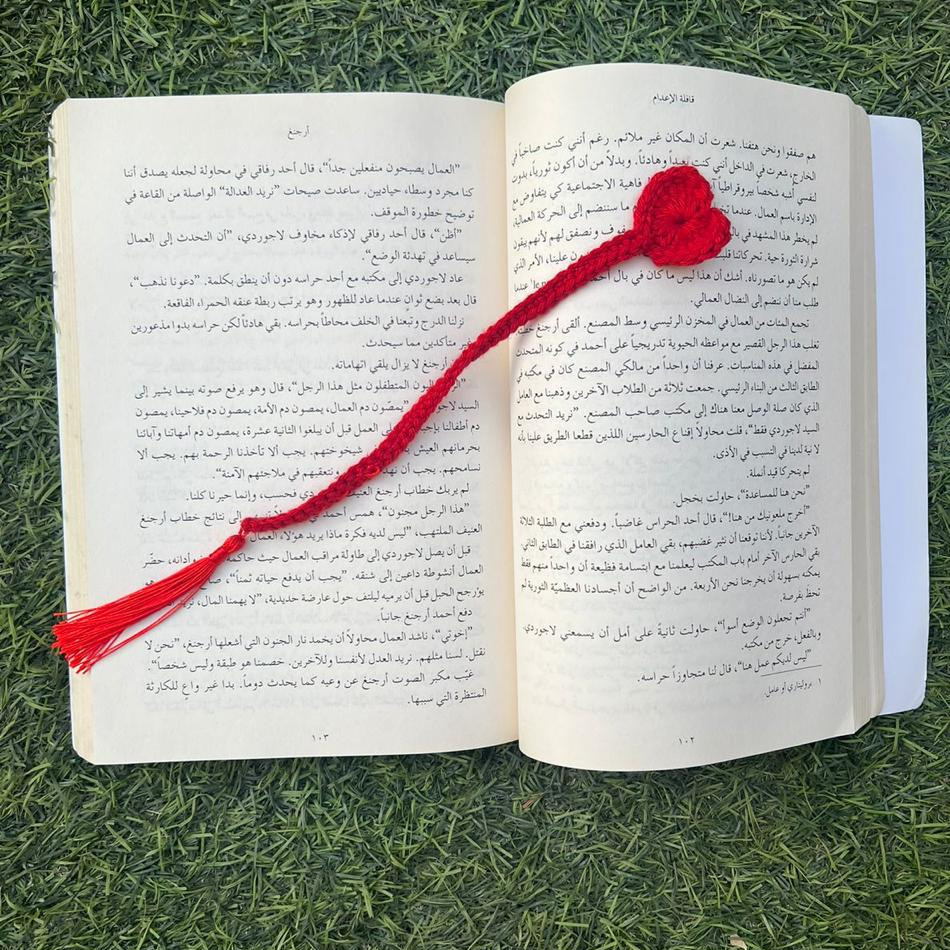 قافلة الإعدام
هم صفقوا ونحن هتفنا. شعرت أن المكان غير ملائم. رغم أنني كنت صاخباً في
الخارج، شعرت في الداخل أنني كنت بعيداً وهادئاً. وبدلاً من أن أكون ثورياً، بدوت
لنفسي أشبه شخصاً بيروقراطياً فاهية الاجتماعية كي يتفاوض مع
الإدارة باسم العمال. عندما ما سننتضم إلى الحركة العمالية،
لم يخطر هذا المشهد في بال فوف ونصفق لهم لأنهم يبقون
شرارة الثورة حية. تحركاتنا قلب ون علينا، الأمر الذي
لم يكن هو ما تصورناه. أشك أن هذا ليس ما كان في بال أحمد عندما
طلب منا أن ننضم إلى النضال العمالي.
تجمع المئات من العمال في المخزن الرئيسي وسط المصنع. ألقى أرجنغ خطبة
تغلب هذا الرجل القصير مع مواعظه الحيوية تدريجياً على أحمد في كونه المتحدث
المفضل في هذه المناسبات. عرفنا أن واحداً من مالكي المصنع كان في مكتبه في
الطابق الثالث من البناء الرئيسي. جمعت ثلاثة من الطلاب الآخرين وذهبنا مع العامل
الذي كان صلة الوصل معنا هناك إلى مكتب صاحب المصنع. ”نريد التحدث مع
السيد لاجوردي فقط“، قلت محاولاً إقناع الحارسين اللذين قطعا الطريق علينا بأنه
لا نية لدينا في التسبب في الأذى.
لم يتحركا قيد أنملة.
”نحن هنا للمساعدة“، حاولت بخجل.
”أخرج ملعونيك من هنا!“، قال أحد الحراس غاضباً. ودفعني مع الطلبة الثلاثة
الآخرين جانباً. لأننا توقعنا أن نثير غضبهم، بقي العامل الذي رافقنا في الطابق الثاني.
بقي الحارس الآخر أمام باب المكتب ليعلمنا مع ابتسامة فظيعة أن واحداً منهم فقط
يمكنه بسهولة أن يخرجنا نحن الأربعة. من الواضح أن أجسادنا العظميّة الثورية لم
تحظ بفرصة.
”أنتم تجعلون الوضع أسوأ“، حاولت ثانيةً على أمل أن يسمعني لاجوردي.
وبالفعل، خرج من مكتبه.
”ليس لديكم عمل هنا“، قال لنا متجاوزاً حراسه.
١ بروليتاري أو عامل.
١٠٢
أرجنغ
”العمال يصبحون منفعلين جداً“، قال أحد رفاقي في محاولة لجعله يصدق أننا
كنا مجرد وسطاء حياديين. ساعدت صيحات ”نريد العدالة“ الواصلة من القاعة في
توضيح خطورة الموقف.
”أظن“، قال أحد رفاقي لإذكاء مخاوف لاجوردي، ”أن التحدث إلى العمال
سيساعد في تهدئة الوضع“.
عاد لاجوردي إلى مكتبه مع أحد حراسه دون أن ينطق بكلمة. ”دعونا نذهب“،
قال بعد بضع ثوانٍ عندما عاد للظهور وهو يرتب ربطة عنقه الحمراء الفاقعة.
نزلنا الدرج وتبعنا في الخلف محاطاً بحراسه. بقي هادئاً لكن حراسه بدوا مذعورين
غير متأكدين مما سيحدث.
أرجنغ لا يزال يلقي اتهاماته.
”الرأسماليون المتطفلون مثل هذا الرجل“، قال وهو يرفع صوته بينما يشير إلى
السيد لاجوردي، ”يمصّون دم العمال، يمصون دم الأمة، يمصون دم فلاحينا، يمصون
دم أطفالنا بإجبارهم على العمل قبل أن يبلغوا الثانية عشرة، يمصون دم أمهاتنا وآبائنا
بحرمانهم العيش شيخوختهم. يجب ألا تأخذنا الرحمة بهم. يجب ألا
نسامحهم. يجب أن نهد نتعقبهم في ملاجئهم الآمنة“.
لم يربك خطاب أرجنغ العنيف لاجوردي فحسب، وإنما حيرنا كلنا.
”هذا الرجل مجنون“، همس أحمد في إلى نتائج خطاب أرجنغ
العنيف الملتهب، ”ليس لديه فكرة ماذا يريد هؤلاء العمال
قبل أن يصل لاجوردي إلى طاولة مراقب العمال حيث حاكمه وأدانه، حضّر
العمال أنشوطة داعين إلى شنقه. ”يجب أن يدفع حياته ثمناً“، صاح وهو
يؤرجح الحبل قبل أن يرميه ليلتف حول عارضة حديدية، ”لا يهمنا المال، نريد
دفع أحمد أرجنغ جانباً.
”إخوتي“، ناشد العمال محاولاً أن يخمد نار الجنون التي أشعلها أرجنغ، ”نحن لا
نقتل. لسنا مثلهم. نريد العدل لأنفسنا وللآخرين. خصمنا هو طبقة وليس شخصاً“.
غيّب مكبر الصوت أرجنغ عن وعيه كما يحدث دوماً. بدا غير واعٍ للكارثة
المنتظرة التي سببها.
١٠٣